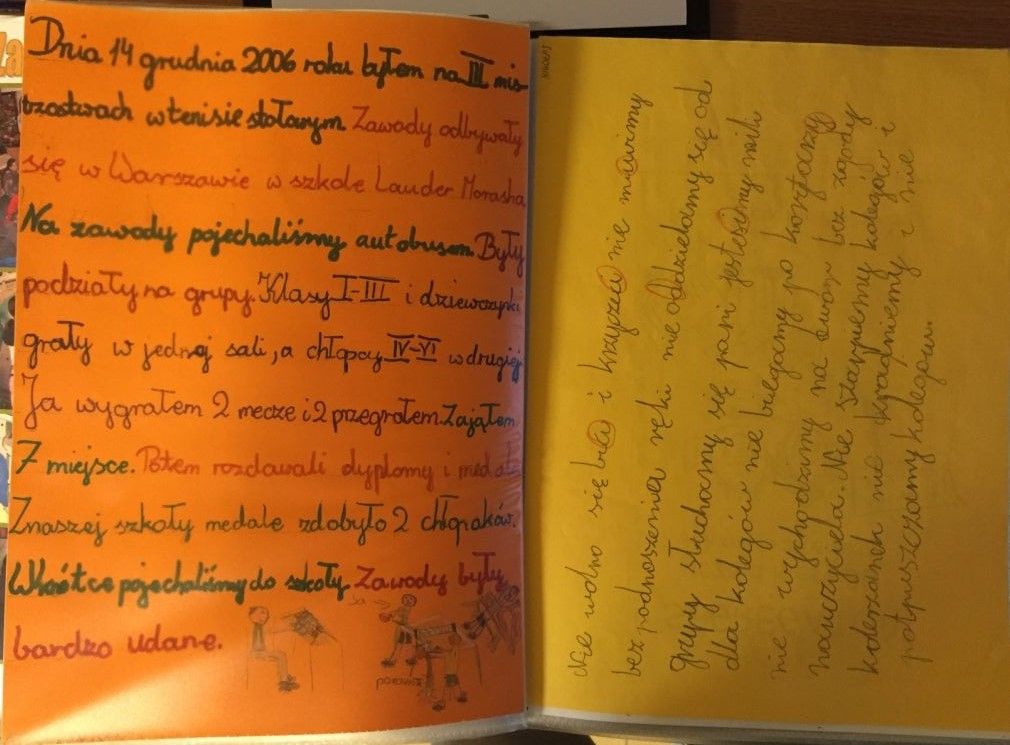 Dnia 14 grudnia 2006 roku byłem na III mis-
trzostwach w tenisie stołowym. Zawody odbywały
się w Warszawie w szkole Lauder Morasha
Na zawody pojechaliśmy autobusem. Były
podziały na grupy. Klasy I-III i dziewczynki
grały w jednej sali, a chłopcy IV-VI w drugiej.
Ja wygrałem 2 mecze i 2 przegrałem. Zająłem
7 miejsce. Potem rozdawali dyplomy i medale
Znaszej szkoły medale zdobyło 2 chłopaków.
Wkrótce pojechaliśmy do szkoły. Zawody były
bardzo udane.
ja
Nie wolno się bića i krzyczeć nie mówimy
bez podnoszenia ręki nie oddzielamy się od
grupy słuchamy się pani jesteśmy mili
dla kolegów nie biegamy po korytarzy
nie wychodzimy na dwór bez zgody
nauczyciela. Nie szarpiemy kolegów i
koleżanek nie kradniemy i nie
potpuszczamy kolegów.